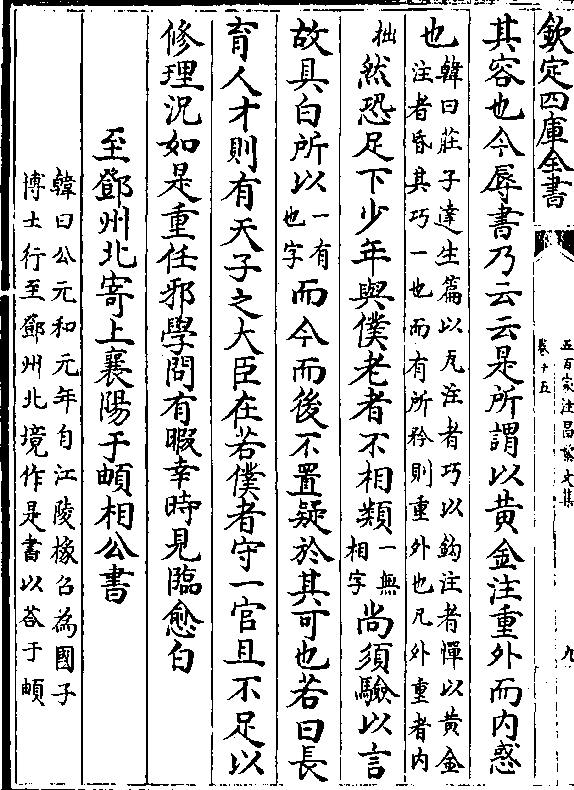 欽定四庫全書
五百家注昌黎文集
卷十五
九
其容也今辱書乃云云是所謂以黃金注重外而内惑
也韓曰莊子達生篇以瓦注者巧以鈎注者憚以黄金
注者昏其巧一也而有所矜則重外也凡外重者内
拙然恐足下少年與僕老者不相類一無
相字尚須驗以言
故具白所以一有
也字而今而後不置疑於其可也若曰長
育人才則有天子之大臣在若僕者守一官且不足以
修理況如是重任邪學問有暇幸時見臨愈白
至鄧州北寄上襄陽于頔相公書
韓曰公元和元年自江陵掾召為國子
博士行至鄧州北境作是書以答于頔